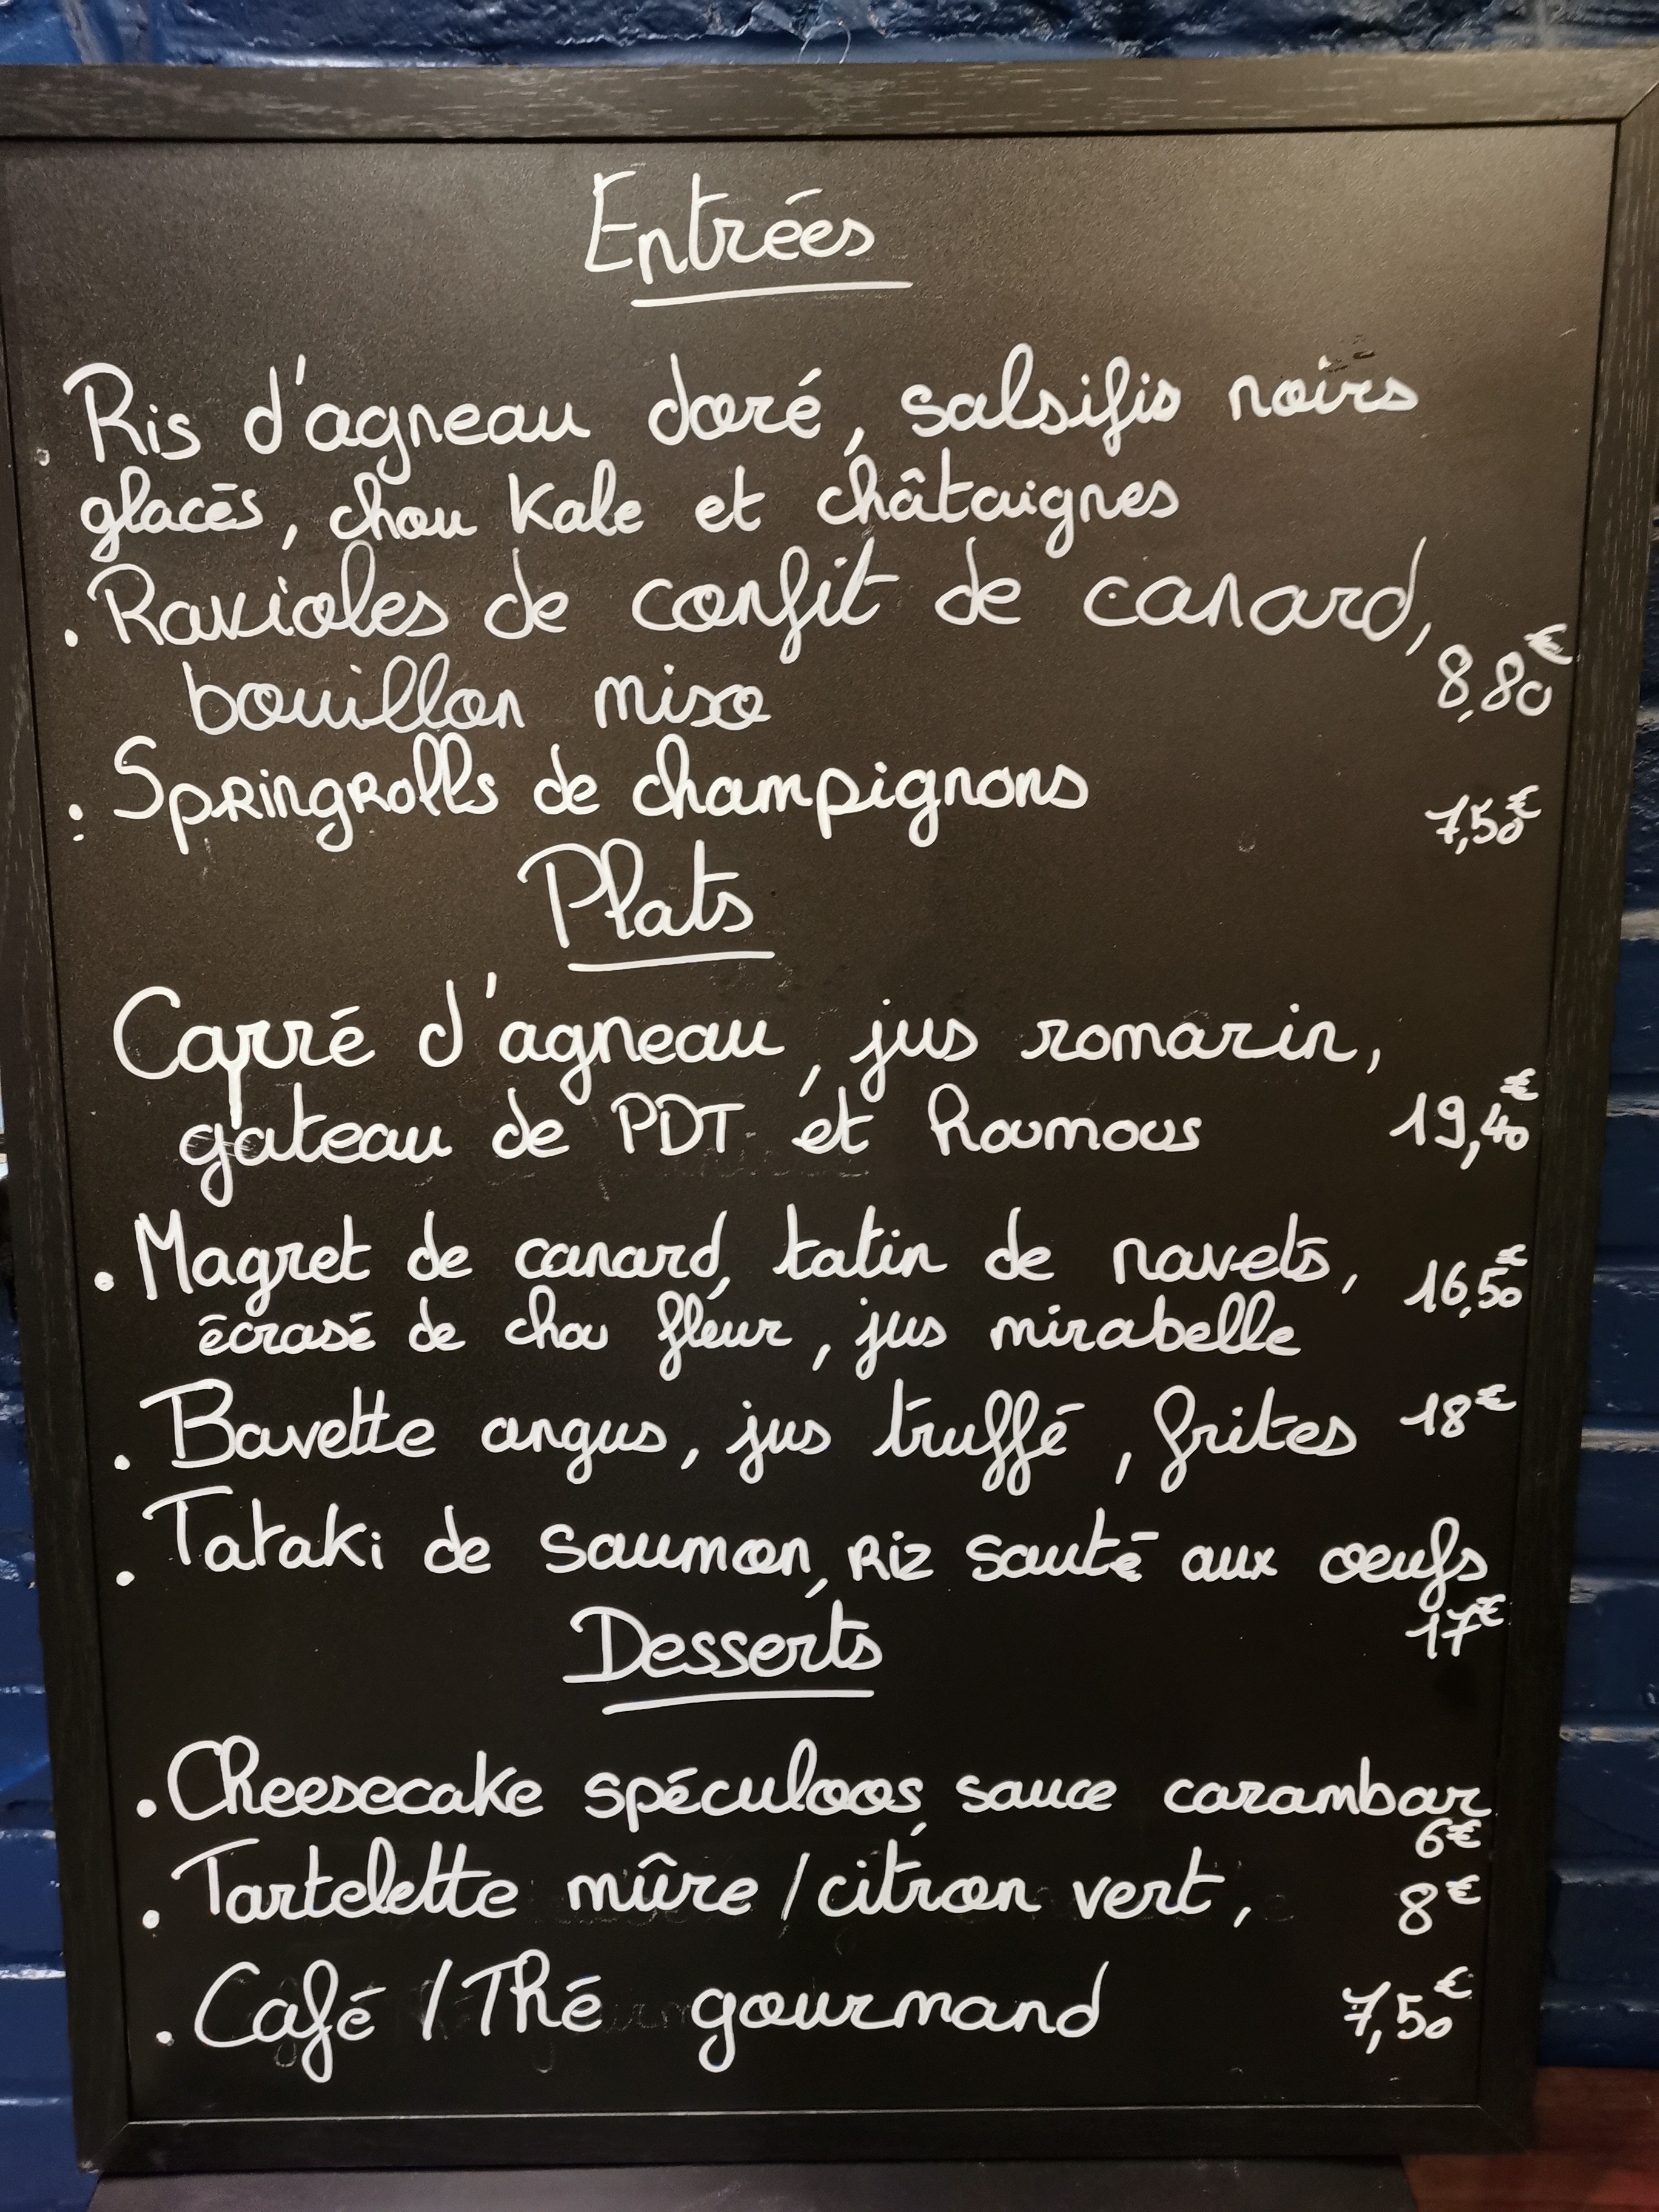 Entrées
. Ris d'agneau doré, salsifis noirs
glacés, chou Kale et châtaignes
. Ravioles de confit de canard,
bouillon miso 8,80€
: Springrolls de champignons 7,50€
Plats
Carré d'agneau, jus romarin,
gateau de PDT et Houmous 19,40€
. Magret de canard, tatin de navets, 16,50€
écrasé de chou fleur, jus mirabelle
. Bavette angus, jus truffé, frites 18€
. Tataki de saumon, Riz sauté aux oeufs
17€
Desserts
. Cheesecake spéculoos, sauce carambar
6€
. Tartelette mûre / citron vert, 8€
. Café / Thé gourmand 7,50€